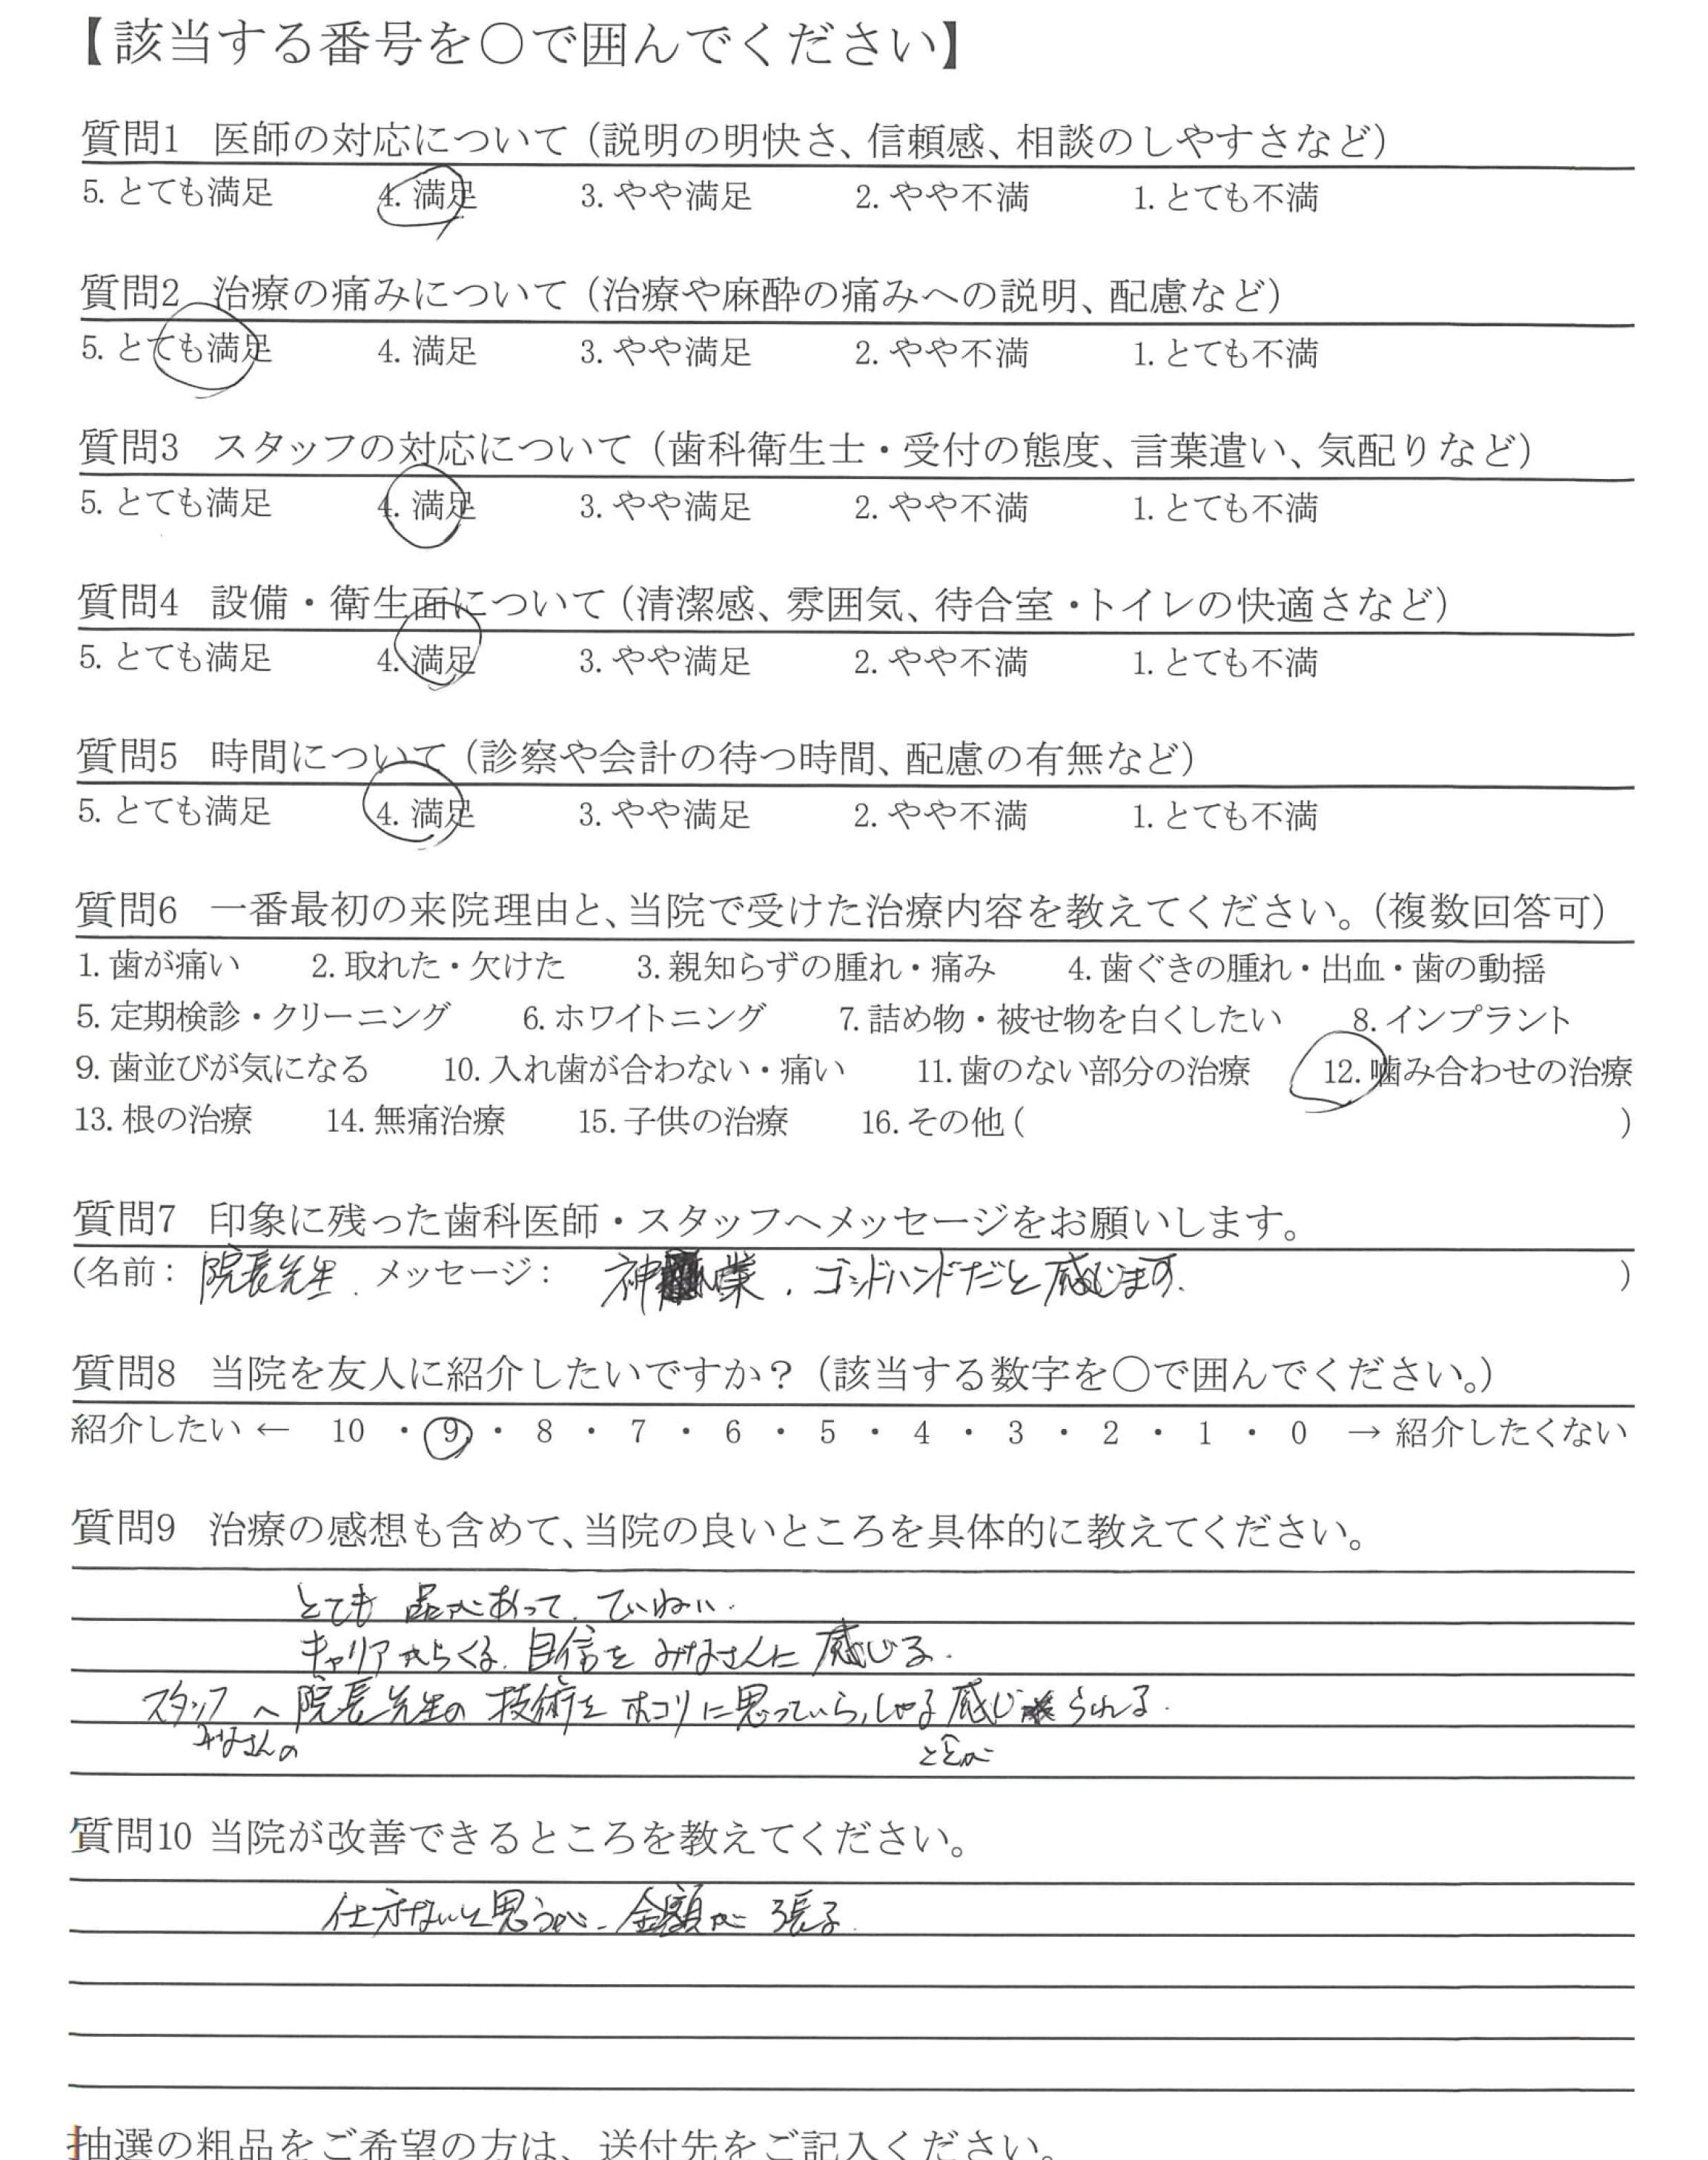 【該当する番号を○で囲んでください】
質問1 医師の対応について（説明の明快さ、信頼感、相談のしやすさなど）
5. とても満足 4. 満足 3. やや満足 2. やや不満 1. とても不満
質問2 治療の痛みについて（治療や麻酔の痛みへの説明、配慮など）
5. とても満足 4. 満足 3. やや満足 2. やや不満 1. とても不満
質問3 スタッフの対応について（歯科衛生士・受付の態度、言葉遣い、気配りなど）
5. とても満足 4. 満足 3. やや満足 2. やや不満 1. とても不満
質問4 設備・衛生面について（清潔感、雰囲気、待合室・トイレの快適さなど）
5. とても満足 4. 満足 3. やや満足 2. やや不満 1. とても不満
質問5 時間について（診察や会計の待つ時間、配慮の有無など）
5. とても満足 4. 満足 3. やや満足 2. やや不満 1. とても不満
質問6 一番最初の来院理由と、当院で受けた治療内容を教えてください。（複数回答可）
1. 歯が痛い 2. 取れた・欠けた 3. 親知らずの腫れ・痛み 4. 歯ぐきの腫れ・出血・歯の動揺
5. 定期検診・クリーニング 6. ホワイトニング 7. 詰め物・被せ物を白くしたい 8. インプラント
9. 歯並びが気になる 10. 入れ歯が合わない・痛い 11. 歯のない部分の治療 12. 噛み合わせの治療
13. 根の治療 14. 無痛治療 15. 子供の治療 16. その他（ ）
質問7 印象に残った歯科医師・スタッフへメッセージをお願いします。
（名前： 院長先生. メッセージ： 神業. ゴッドハンドだと感じます. ）
質問8 当院を友人に紹介したいですか？（該当する数字を○で囲んでください。）
紹介したい ← 10 ・ 9 ・ 8 ・ 7 ・ 6 ・ 5 ・ 4 ・ 3 ・ 2 ・ 1 ・ 0 → 紹介したくない
質問9 治療の感想も含めて、当院の良いところを具体的に教えてください。
とても 品があって. ていねい.
キャリアからくる. 自信を みなさんに 感じる.
スタッフ へ 院長先生の 技術を ホコリに思っていらっしゃる 感じられる.
みなさんの ことが
質問10 当院が改善できるところを教えてください。
仕方ないと思うが. 金額が 張る.
抽選の粗品をご希望の方は、送付先をご記入ください。